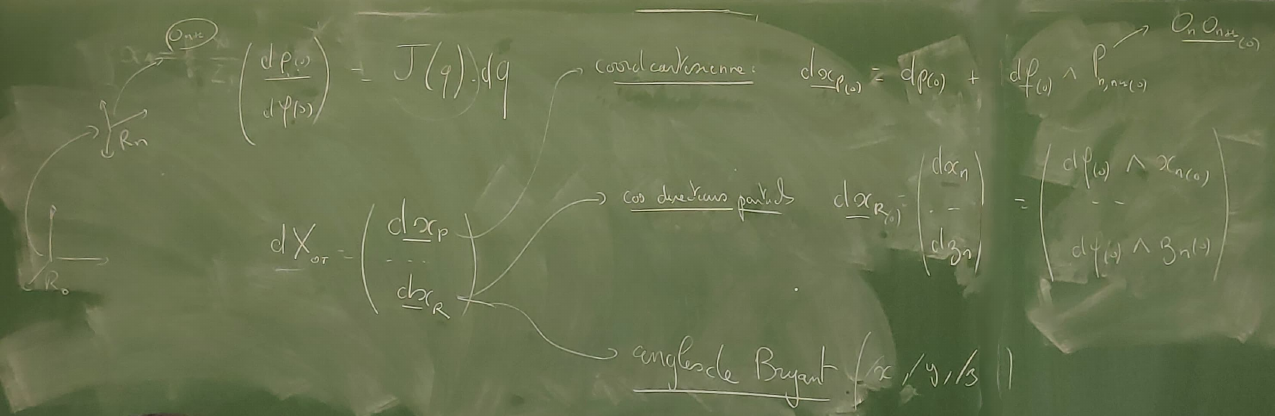 O_{n+1}
R_n
R_0
( dp_{(0)} / dφ_{(0)} ) = J(q).dq
dX_{OT} = ( dx_P .... dx_R )
coord cartésienne : dx_{P(0)} = dp_{(0)} + dφ_{(0)} ∧ P_{n,n+1(0)} → O_n O_{n+1(0)}
cos directeurs partiels dx_{R(0)} = ( dx_n ... dz_n ) = ( dφ_{(0)} ∧ x_{n(0)} ... dφ_{(0)} ∧ z_{n(0)} )
angles de Bryant (/x, /y, /z ()